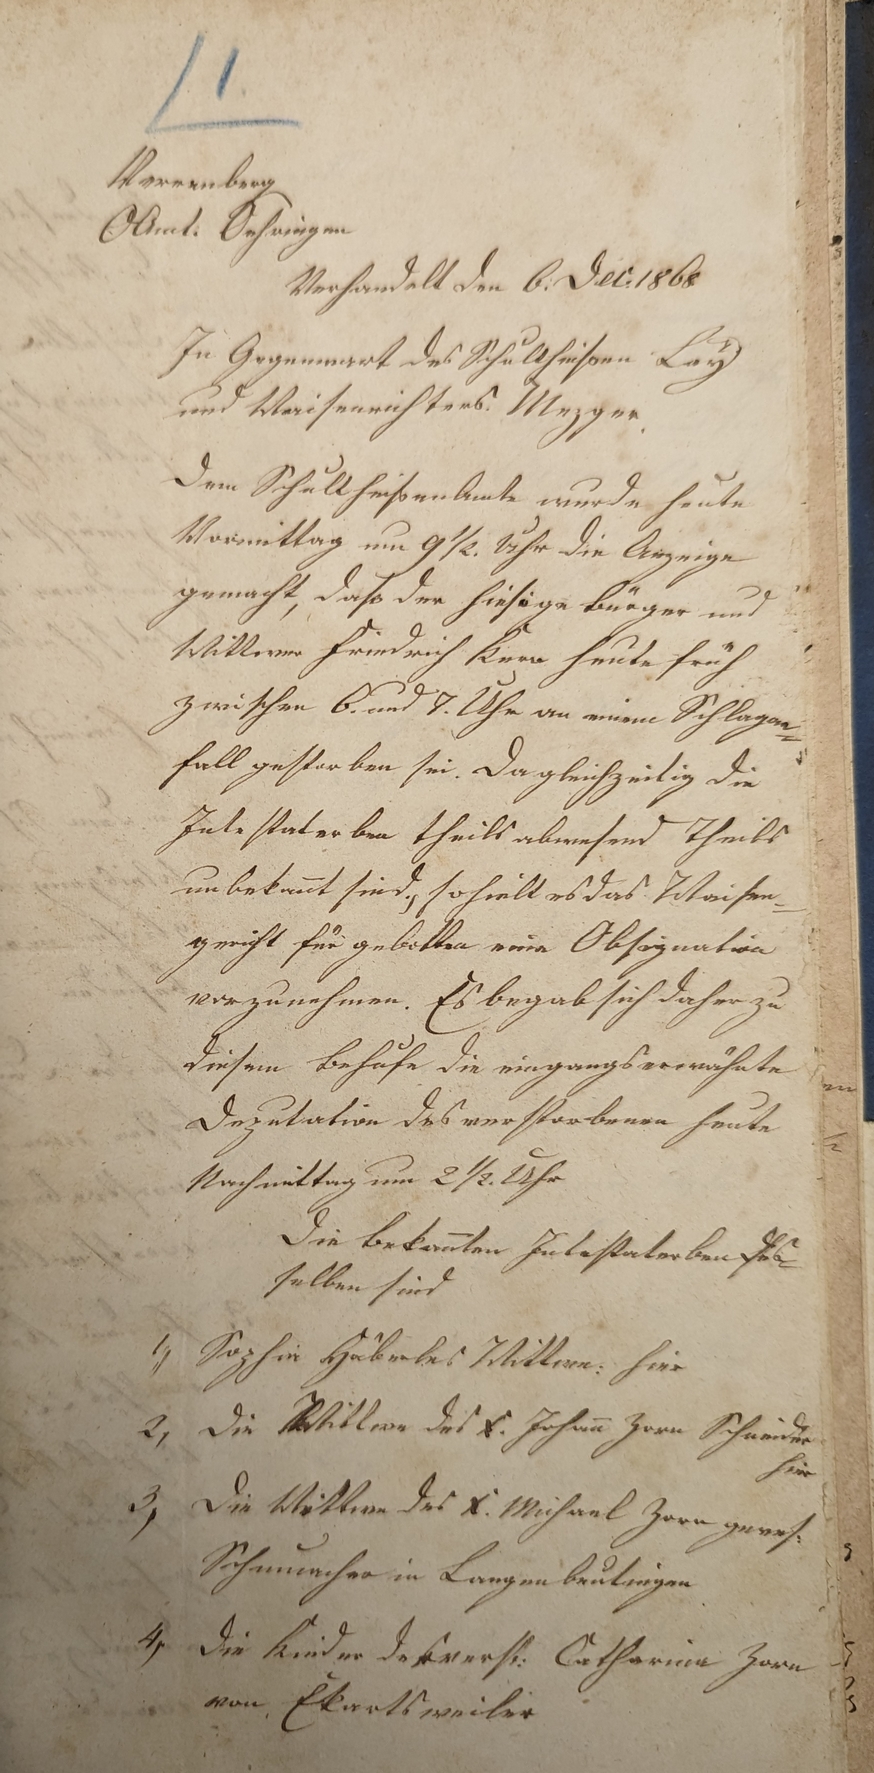 1
Verrenberg
OAmt. Oehringen
Verhandelt den 6. Dec. 1868
In Gegenwart des Schultheißen Lay
und Waisenrichters Mezger.
Dem Schultheißenamte wurde heute
Vormittag um 9 1/2. Uhr die Anzeige
gemacht, daß der hiesige Bürger und
Wittwer Friedrich Kern heute früh
zwischen 6. und 7. Uhr an einem Schlagan=
fall gestorben sei. Da gleichzeitig die
Intestaterben theils abwesend theils
unbekannt sind, so hielt es das Waisen=
gericht für gebotten eine Obsignation
vorzunehmen. Es begab sich daher zu
diesem Behufe die eingangserwähnte
Deputation des verstorbenen heute
Nachmittag um 2 1/2. Uhr
Die bekannten Intestaterben des=
selben sind
1, Sophie Häberles Wittwe: hier
2, Die Wittwe des †. Johann Zorn Schneider
hier
3, Die Wittwe des †. Michael Zorn gewes.
Schumacher in Langenbeutingen
4, Die Kinder der verst: Catharine Zorn
von Ekartsweiler